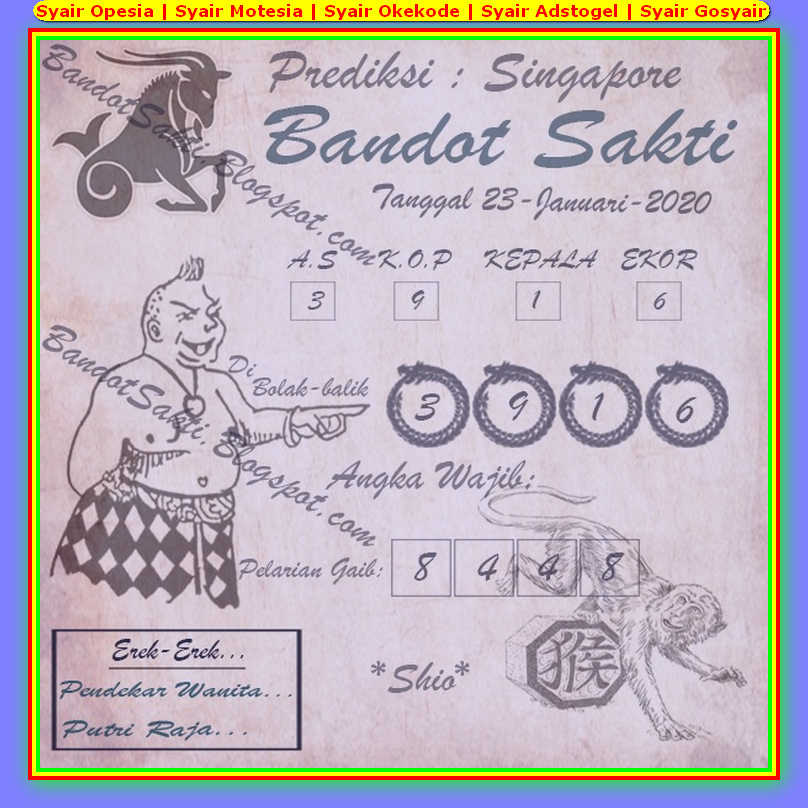 Syair Opesia | Syair Motesia | Syair Okekode | Syair Adstogel | Syair Gosyair
Prediksi : Singapore
Bandot Sakti
Tanggal 23-Januari-2020
BandotSakti.Blogspot.com
A.S K.O.P KEPALA EKOR
3 9 1 6
Di
Bolak-balik
3 9 1 6
BandotSakti.Blogspot.com
Angka Wajib:
Pelarian Gaib: 8 4 4 8
Erek-Erek...
Pendekar Wanita...
Putri Raja...
*Shio*
猴